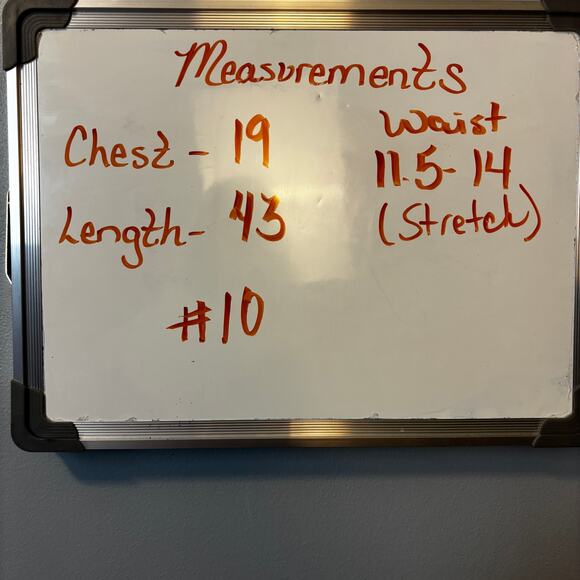 Measurements
Chest - 19
Length - 43
Waist
11.5 - 14
(Stretch)
#10